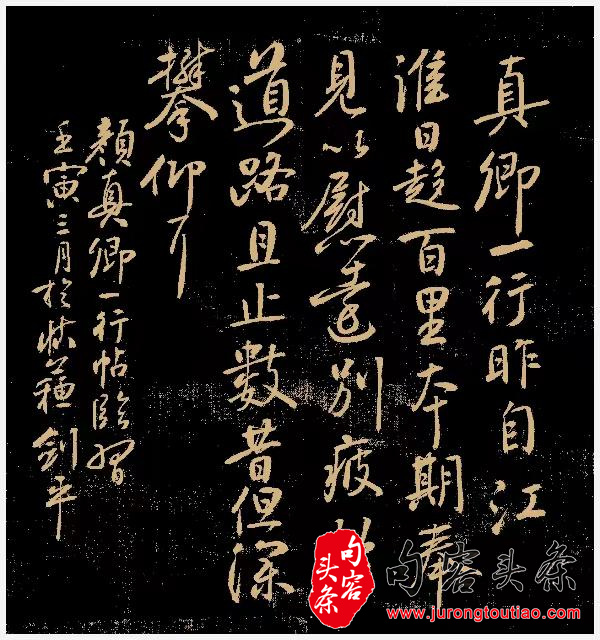 真卿一行昨自江
淮日趍百里本期奉
見以慰遠別疲
道路且止數昔但深
攀仰
顏真卿一行帖臨習
壬寅三月於 劍平
句容头条
句容头条
www.jurongtoutiao.com